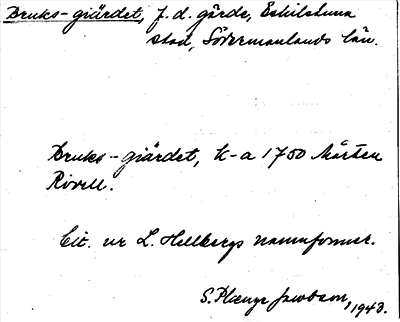 Bruks-giärdet, f.d. gärde, Eskilstuna
stad, Södermanlands län.
Bruks-giärdet, k-a 1750 Mårten
Rivell.
Cit. ur L. Hellbergs namnformer.
S. Jacobson, 1943.